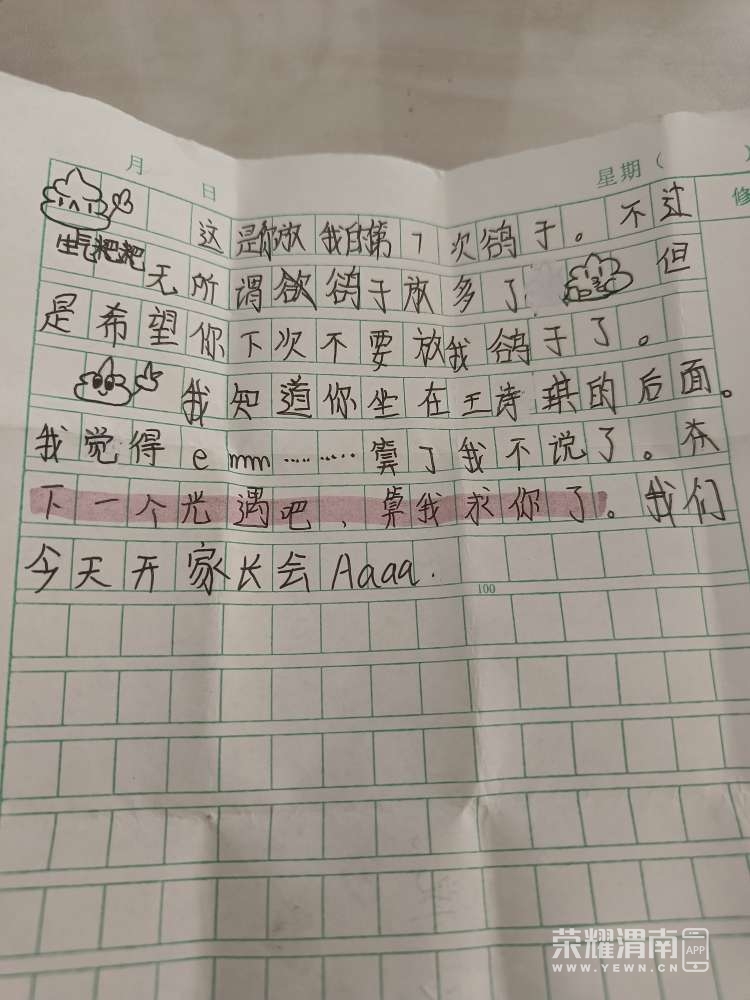 月 日 星期(
修
这是你放我的第7次鸽子。不过
生气粑粑 无所谓欲鸽子放多了 但
是希望你下次不要放我鸽子了。
我知道你坐在王诗琪的后面。
我觉得emmm……… 算了我不说了。
下一个光遇吧、算我求你了。我们
今天开家长会Aaaa.
100
荣耀渭南 APP
WWW.YEWN.CN